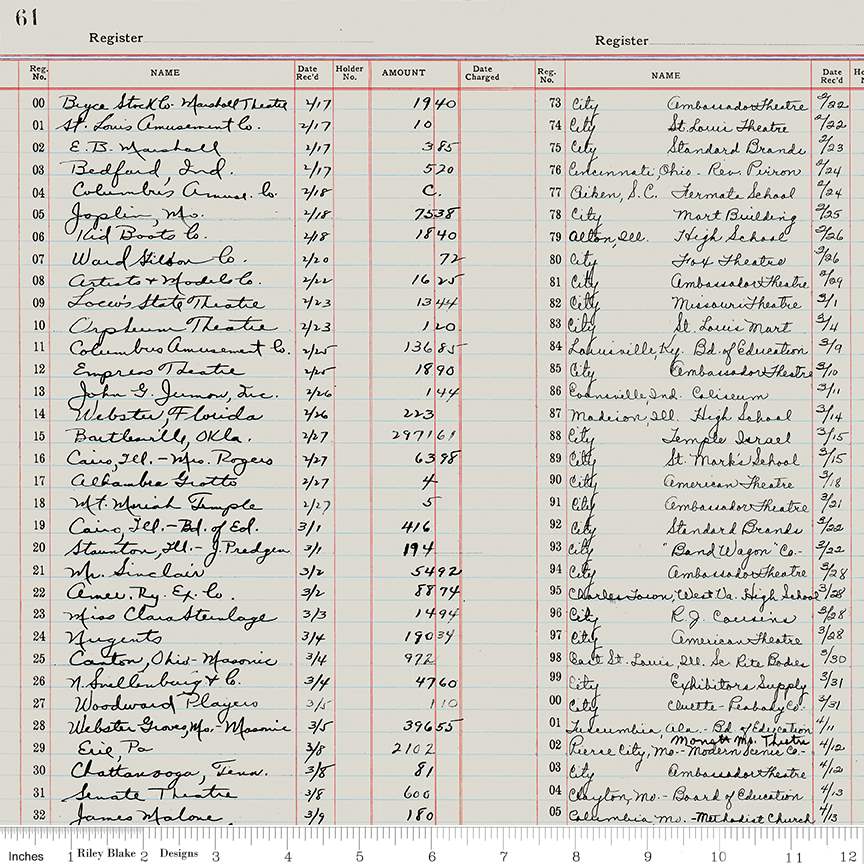 61
Register
Register
Reg. No. NAME Date Rec'd Holder No. AMOUNT Date Charged
Reg. No. NAME Date Rec'd
00 Bryce Stock Co. Marshall Theatre 2/17 19 40
01 St. Louis Amusement Co. 2/17 10
02 E. B. Marshall 2/17 3 85
03 Bedford, Ind. 2/17 5 20
04 Columbus Amuse. Co. 2/18 C.
05 Joplin, Mo. 2/18 75 38
06 Kid Boots Co. 2/18 18 40
07 Ward Co. 2/20 72
08 Artists & Models Co. 2/22 16 25
09 Loew's State Theatre 2/23 13 44
10 Orpheum Theatre 2/23 1 20
11 Columbus Amusement Co. 2/25 136 85
12 Empress Theatre 2/25 18 90
13 John G. Inc. 2/26 1 44
14 Webster, Florida 2/26 223
15 Bartlesville, Okla. 2/27 2971 61
16 Cairo, Ill. - Mrs. Rogers 2/27 63 98
17 Alhambra Grotto 2/27 4
18 Mt. Moriah Temple 2/27 5
19 Cairo, Ill. - Bd. of Ed. 3/1 416
20 Staunton, Ill. - J. 3/1 194
21 Mr. Sinclair 3/2 54 92
22 Amer. Ry. Ex. Co. 3/2 88 74
23 Miss Clara Steinlage 3/3 14 94
24 Nugents 3/4 190 34
25 Canton, Ohio - Masonic 3/4 972
26 N. Snellenburg & Co. 3/4 47 60
27 Woodward Players 3/5 1 10
28 Webster Groves, Mo. - Masonic 3/5 396 55
29 Erie, Pa 3/8 2102
30 Chattanooga, Tenn. 3/8 81
31 Senate Theatre 3/8 600
32 James Malone 3/9 180
73 City Ambassador Theatre 2/22
74 City St. Louis Theatre 2/22
75 City Standard Brands 2/23
76 Cincinnati, Ohio - Rev. 2/24
77 Aiken, S.C. Fermata School 2/24
78 City Mart Building 2/25
79 Alton, Ill. High School 2/26
80 City Fox Theatre 2/26
81 City Ambassador Theatre 2/29
82 City Missouri Theatre 3/1
83 City St. Louis Mart 3/4
84 Louisville, Ky. Bd. of Education 3/9
85 City Ambassador Theatre 3/10
86 Evansville, Ind. Coliseum 3/11
87 Madison, Ill. High School 3/14
88 City Temple Israel 3/15
89 City St. Mark's School 3/15
90 City American Theatre 3/18
91 City Ambassador Theatre 3/21
92 City Standard Brands 3/22
93 City "Band Wagon" Co. - 3/22
94 City Ambassador Theatre 3/28
95 Charles Town, West Va. High School 3/28
96 City R. J. Cousins 3/28
97 City American Theatre 3/28
98 East St. Louis, Ill. Sc Rite Bodies 3/30
99 City Exhibitors Supply 3/31
00 City Cluette - Peabody Co. - 3/31
01 Tuscumbia, Ala. - Bd of Education 4/11
Monett Mo. Theatre
02 Pierce City, Mo - Modern Scenic Co. - 4/12
03 City Ambassador Theatre 4/12
04 Clayton, Mo. - Board of Education 4/13
05 Columbia Mo. - Methodist Church 4/13
Inches 1 Riley Blake 2 Designs 3 4 5 6 7 8 9 10 11 12